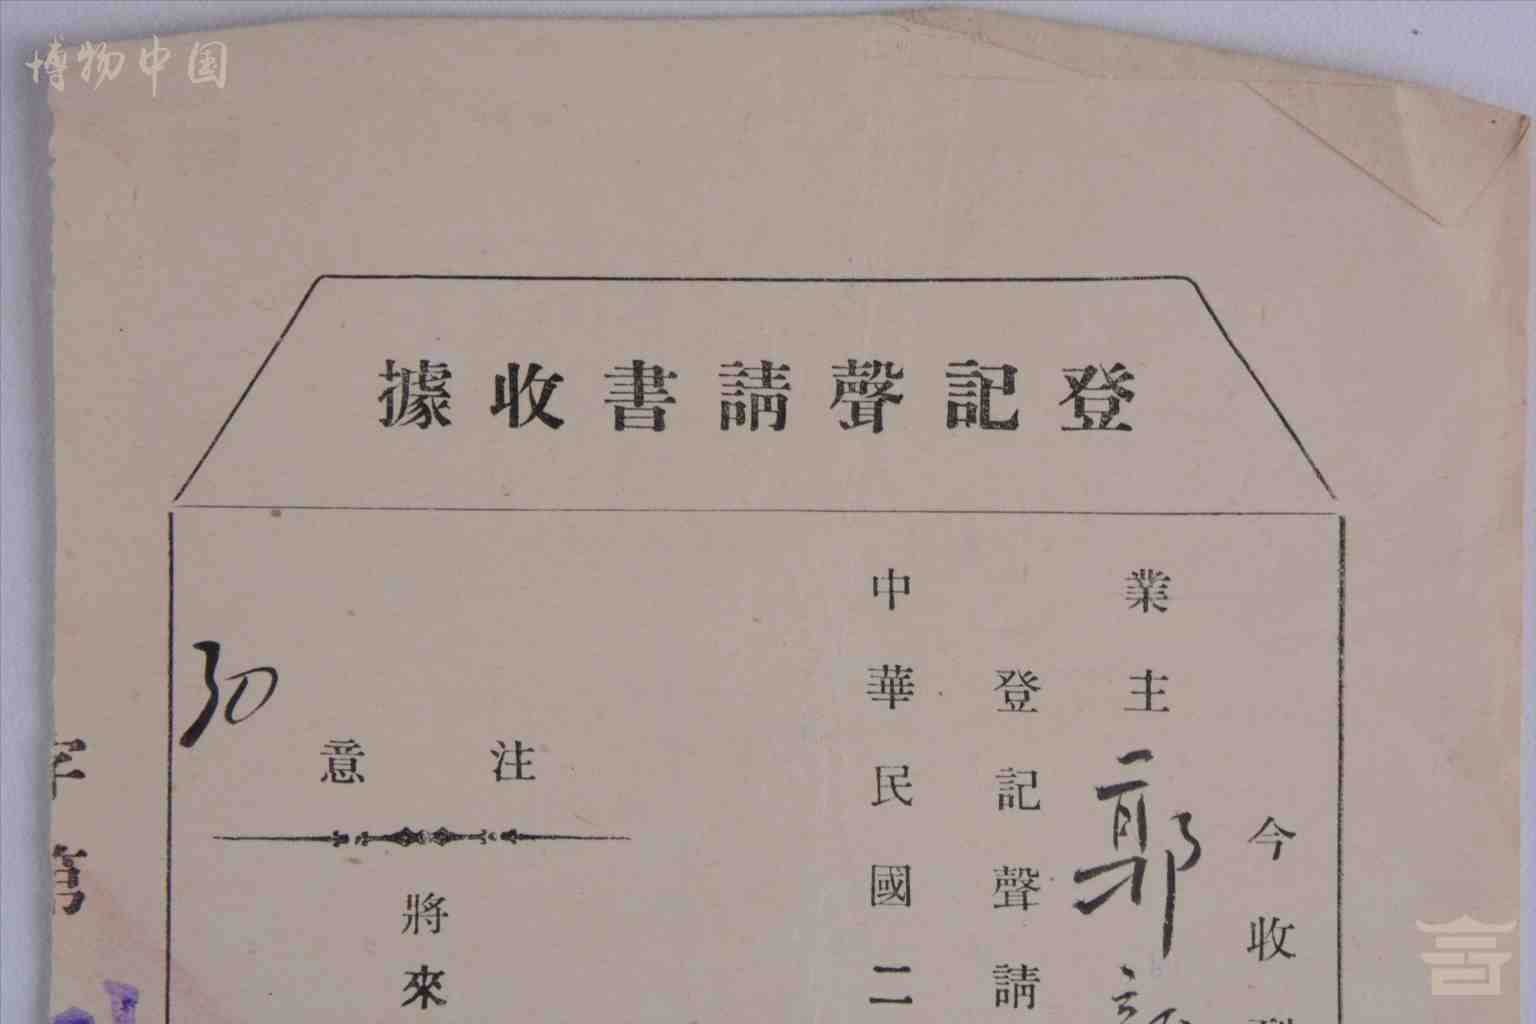 博物中国
登記聲請書收據
今收
業主郭
登記聲請
中華民國二
注意
將來
字第